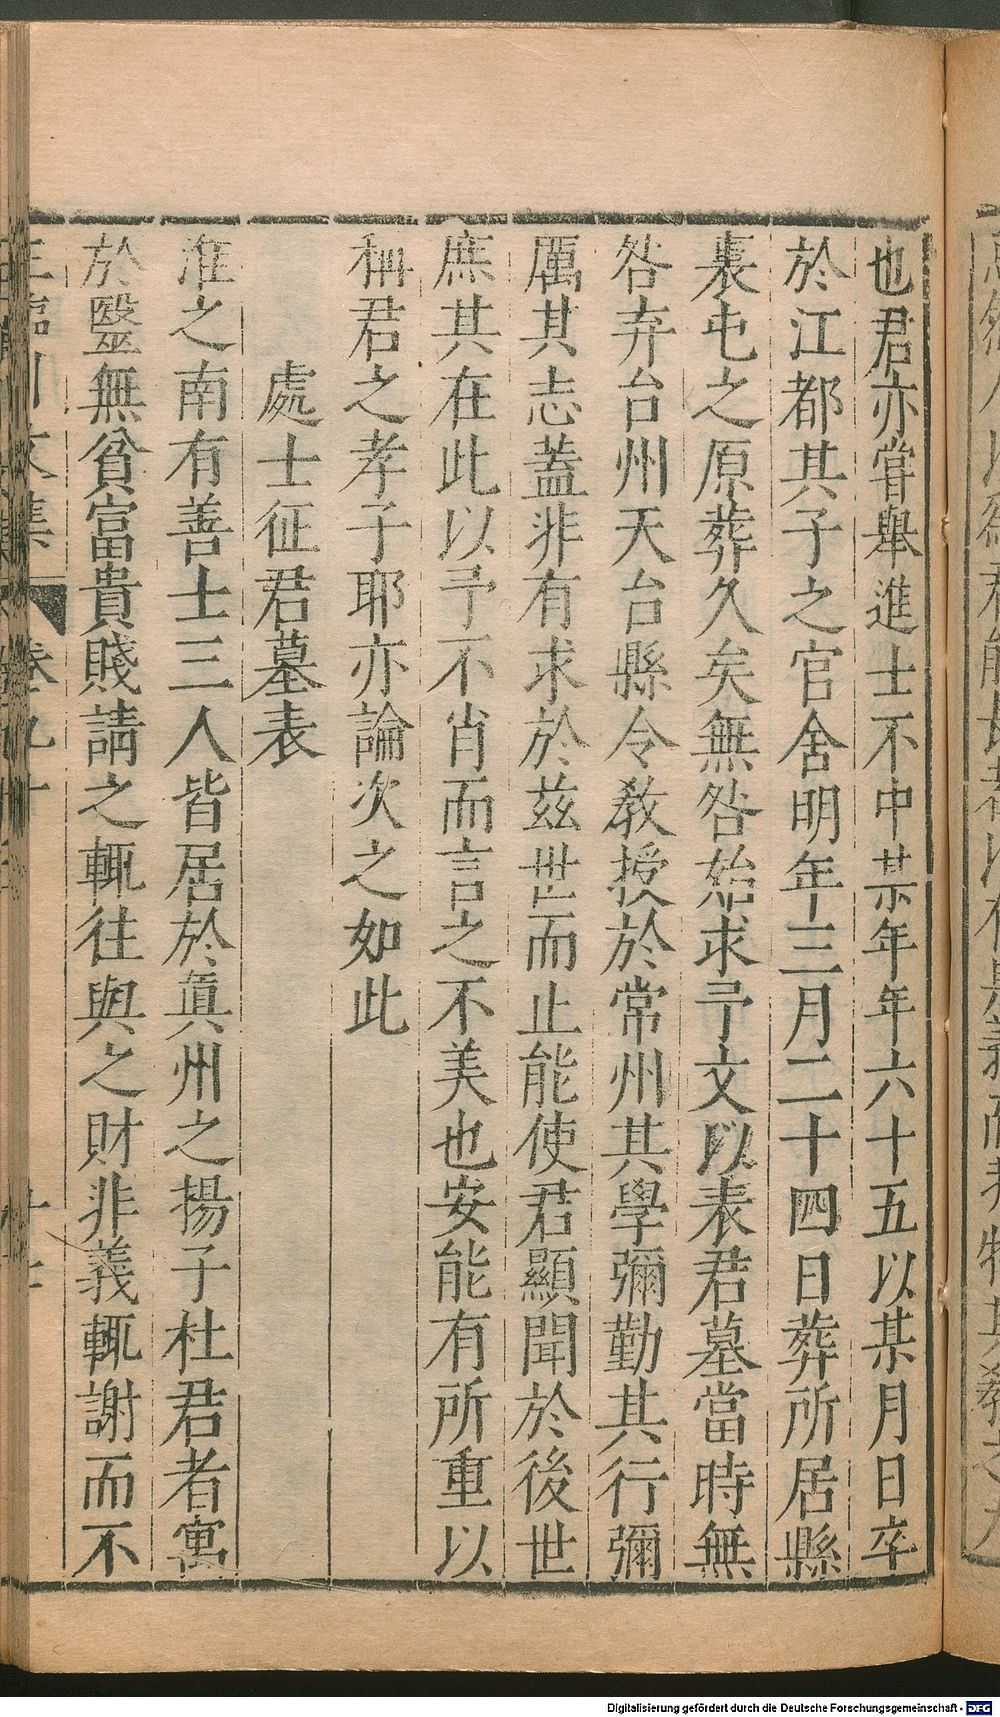 也君亦嘗舉進士不中某年年六十五以某月日卒
於江都其子之官舍明年三月二十四日葬所居縣
裹屯之原葬久矣無咎始求予文以表君墓當時無
咎弃台州天台縣令敎授於常州其學彌勤其行彌
厲其志蓋非有求於茲世而止能使君顯聞於後世
庶其在此以予不肖而言之不美也安能有所重以
稱君之孝子耶亦論次之如此
處士征君墓表
淮之南有善士三人皆居於眞州之揚子杜君者寓
於醫無貧富貴賤請之輒往與之財非義輒謝而不
Digitalisierung gefördert durch die Deutsche Forschungsgemeinschaft - DFG